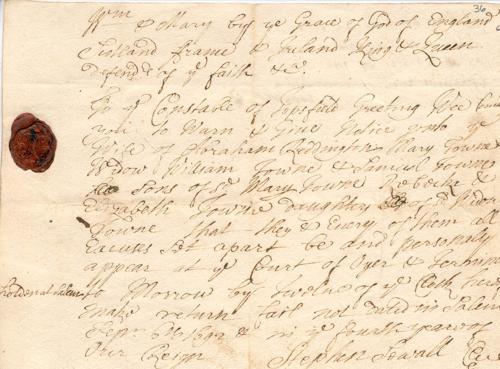 36
Wm & Mary by ye Grace of God of England
Scotland France & Ireland King & Queen
defendrs of ye faith &c.
To ye Constable of Topsfield Greeting Wee
you to Warn & Give Notice unto ye
Wife of Abraham Reddington Mary Towne
Widow William Towne & Samuel Towne
Sons of sd Mary Towne Rebecka &
Elizabeth Towne Daughters of ye Widow
Towne that they & Every of them all
Excuses Set apart be and personaly
appear at ye Court of Oyer & Termin
holden at Salem
to Morrow by twelve of ye Clock
make return fail not Dated in Salem
Sepr 1692 & in ye fourth yeare of
Our Reign Stephen Sewall